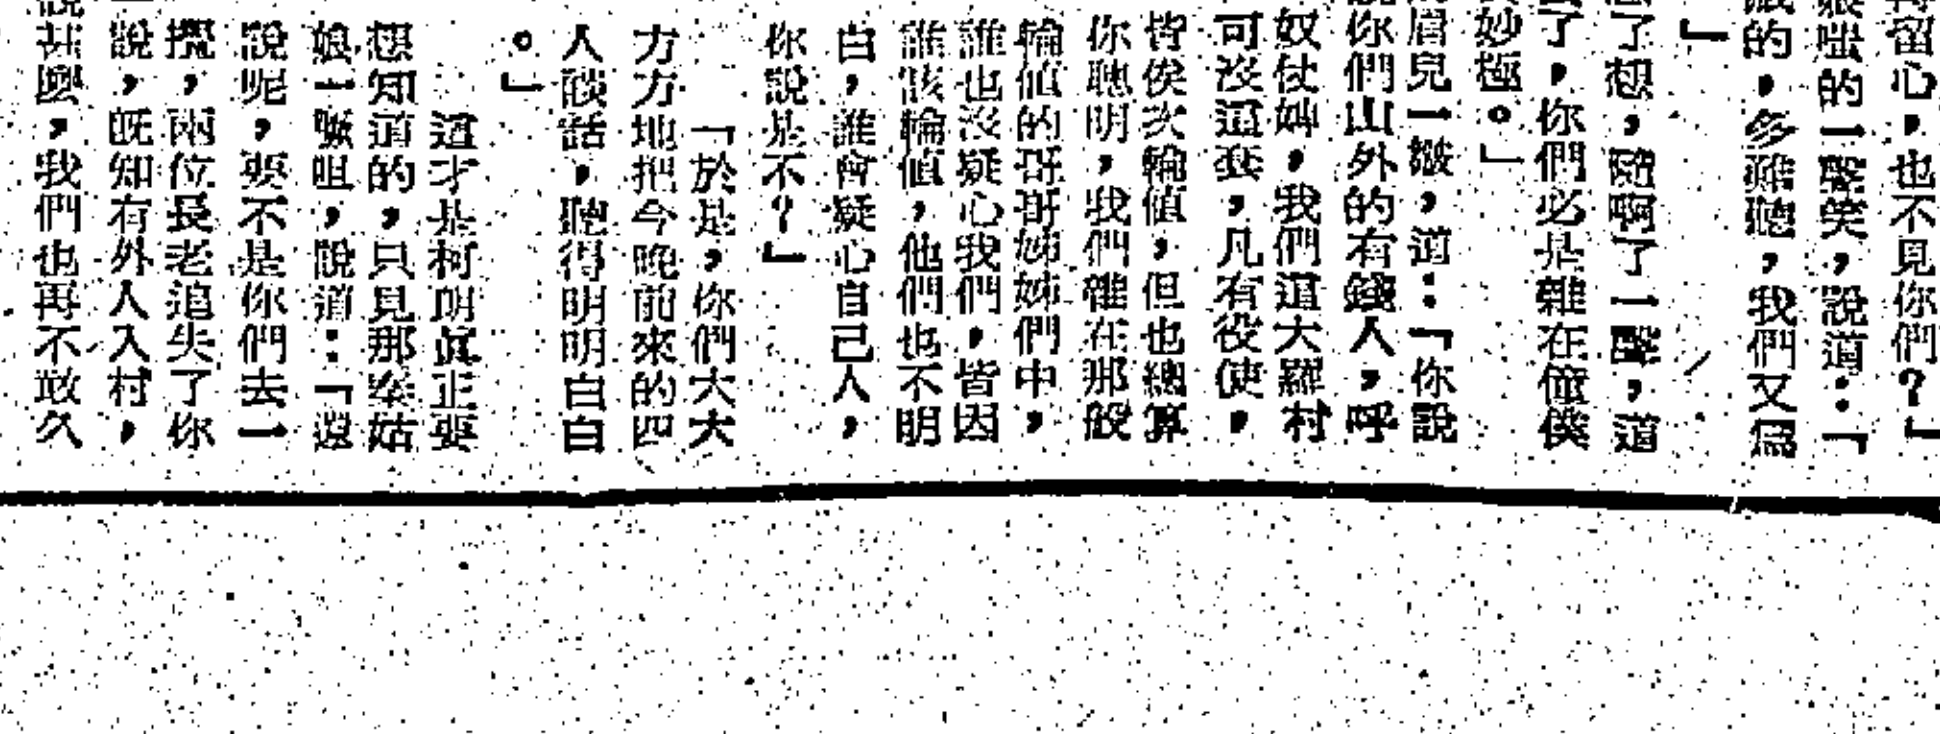 留心，也不見你們？」
娘嗤的一聲笑，說道：「
的，多難聽，我們又爲
」
了想，隨啊了一聲，道
了，你們必是雜在僮僕
妙極。」
眉兒一皺，道：「你說
你們山外的有錢人，呼
奴仗婢，我們這大羅村
可沒這套，凡有役使，
皆俟次輪值，但也總算
你聰明，我們雜在那般
輪值的哥哥姊姊們中，
誰也沒疑心我們，皆因
誰該輪值，他們也不明
白，誰會疑心自己人，
你說是不？」
「於是，你們大大
方方地把今晚前來的四
人談話，聽得明明白白
。」
這才是柯朗眞正要
想知道的，只見那秦姑
娘一噘咀，說道：「還
說呢，要不是你們去一
攪，兩位長老追失了你
說，旣知有外人入村，
說甚麼，我們也再不敢久